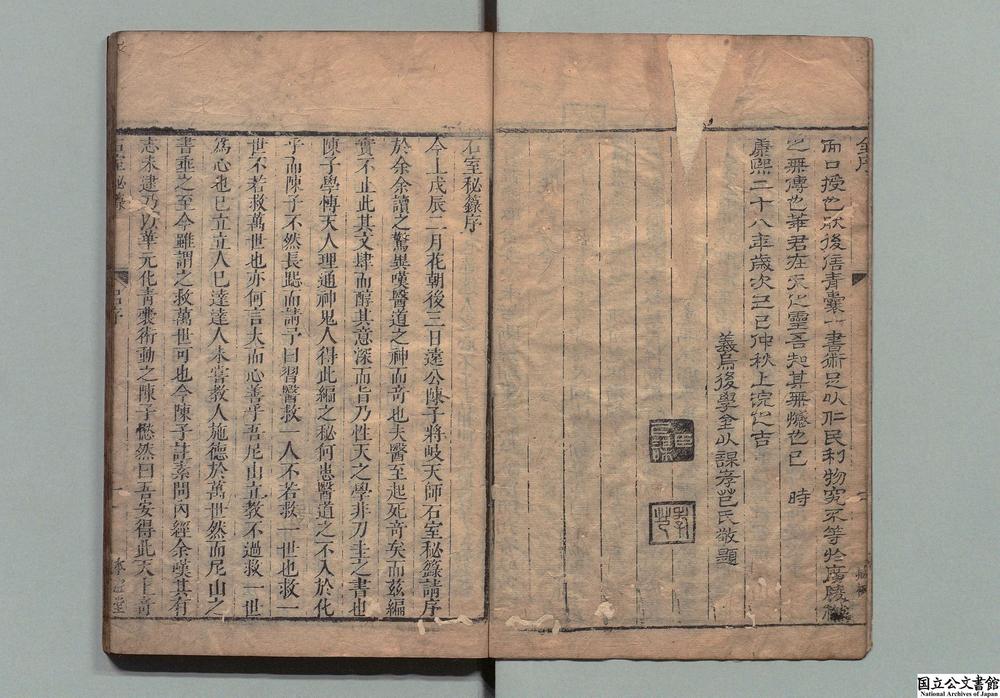 而口授也然後信青囊一書術足以仁民利物究不等於廣陵
之無傳也華君在天之靈吾知其無憾也已 時
康熙二十八年歲次己巳仲秋上浣之吉
義烏後學金以謀孝芑氏敬題
石室秘籙序
今上戊辰二月花朝後三日遠公陳子將岐天師石室秘籙請序
於余余讀之驚異嘆醫道之神而奇也夫醫至起死奇矣而茲編
實不止此其文肆而醇其意深而旨乃性天之學非刀圭之書也
陳子學博天人理通神鬼人得此編之秘何患醫道之不入於化
乎而陳子不然長跽而請予曰習醫救一人不若救一世也救一
世不若救萬世也亦何言大而心善乎吾尼山立教不過救一世
爲心也已立立人已達達人未嘗教人施德於萬世然而尼山之
書垂之至今雖謂之救萬世可也今陳子註素問內經余嘆其有
志未逮乃以華元化青囊術動之陳子愀然曰吾安得此天上奇
石室秘籙
呂序
一
國立公文書館
National Archives of Japan